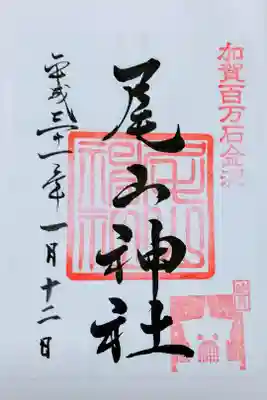 加賀百万石金沢
尾山神社
平成三十一年一月十二日